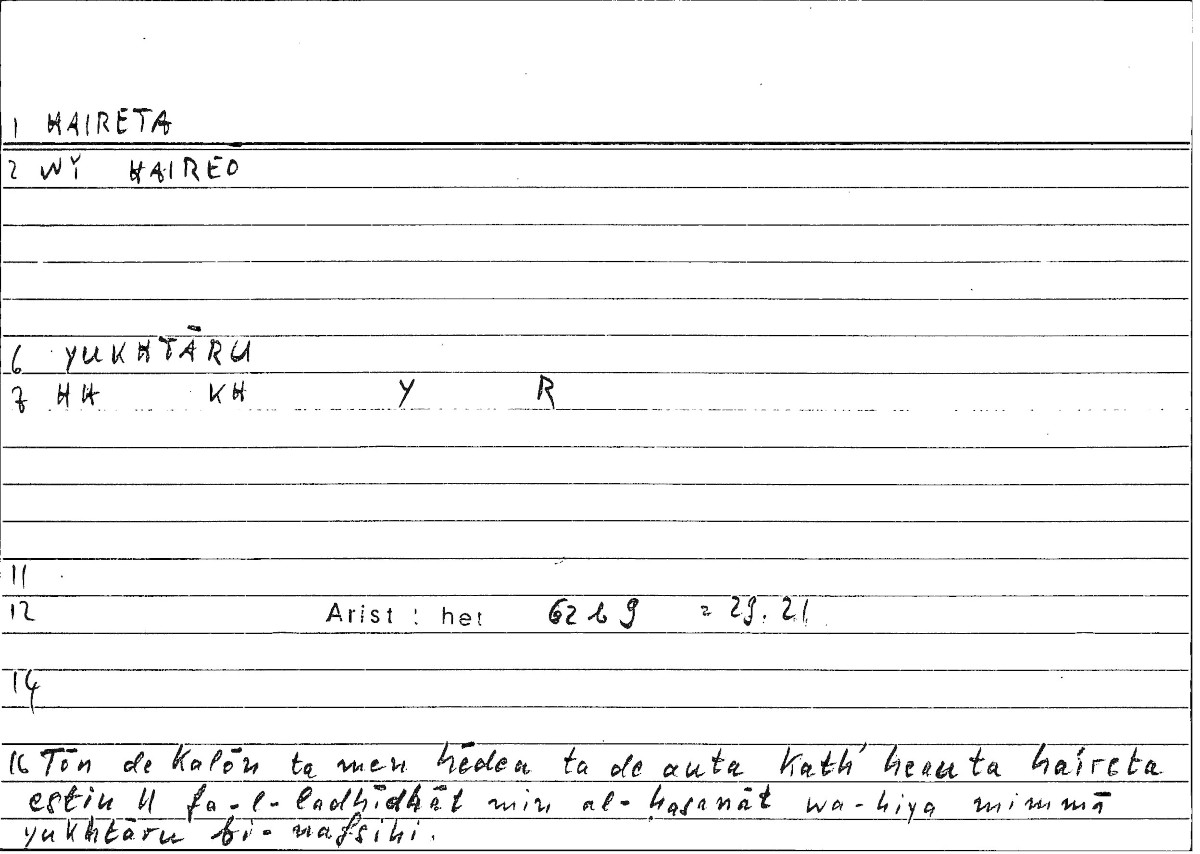 1 HAIRETA
2 WY HAIREO
6 YUKHTĀRU
7 HH KH Y R
11
12 Arist : het 62 b 9 = 29. 21
14
16 Tōn de kalōn ta men hēdea ta de auta kath' heauta haireta
estin // fa-l-ladhīdhāt min al-ḥasanāt wa-hiya mimmā
yukhtāru bi-nafsihi.